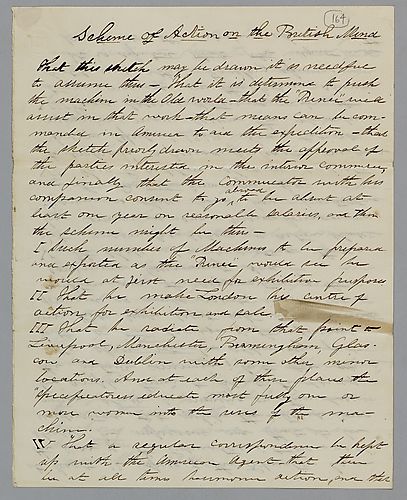 164
Scheme of Action on the British Mind
That this sketch may be drawn it is needful
to assume this — That it is determined to push
the machine in the Old world — that the Prince will
assist in that work — that means can be com-
manded in America to aid the expedition — that
the sketch priorly drawn meets the approval of
the parties interested in the interior commerce,
and finally that the Communicator with his
companion consent to go, to be absent at
abroad
least one year on reasonable salaries, and then
the scheme might be this —
I Such number of Machines to be prepared
and exported as the "Prince" would see he
would at first need for exhibitive purposes
II That he make London his centre of
action, for exhibition and sale.
III That he radiate from that point to
Liverpool, Manchester, Birmingham, Glas-
cow and Dublin with some other minor
locations. And at each of these places the
educate most fully one or
more women into the uses of the ma-
chine.
IV That a regular correspondence be kept
up with the American Agent, that there
be at all times harmonic action, and that